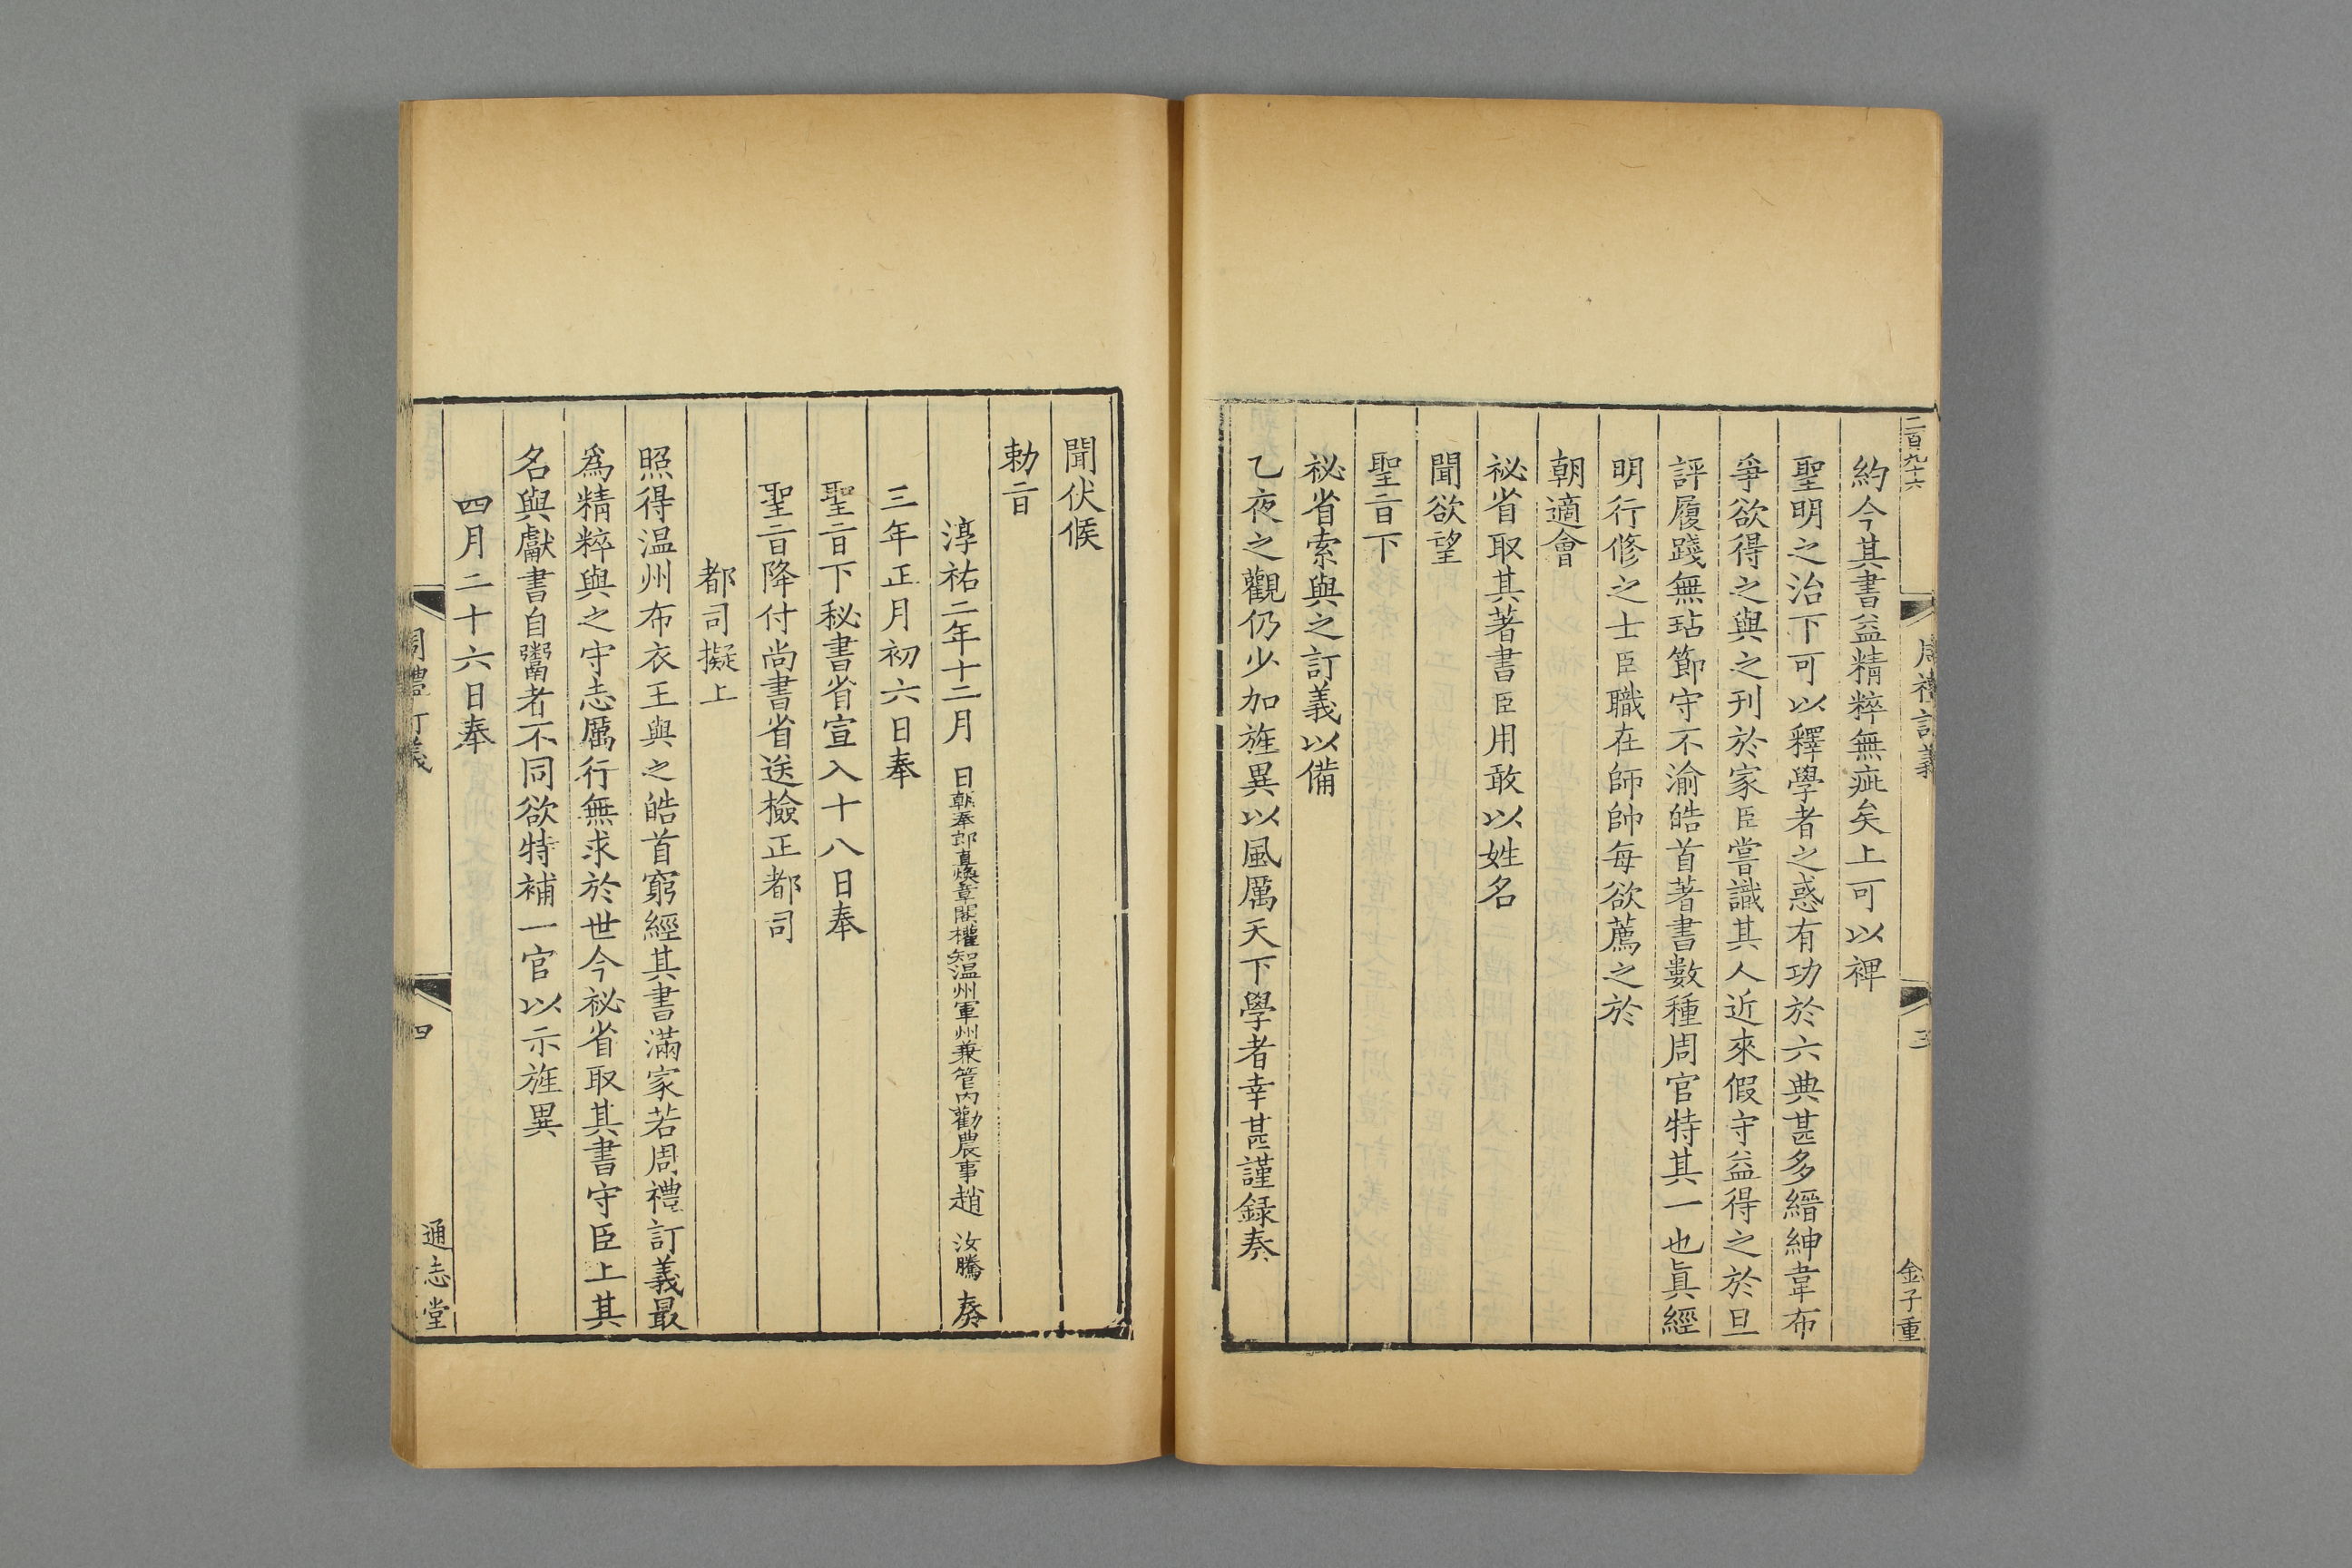 二百九十六
周禮訂義
三
金子重
約今其書益精粹無疵矣上可以裨
聖明之治下可以釋學者之惑有功於六典甚多縉紳韋布
爭欲得之與之刊於家臣嘗識其人近來假守益得之於旦
評履踐無玷節守不渝皓首著書數種周官特其一也眞經
明行修之士臣職在師帥每欲薦之於
朝適會
祕省取其著書臣用敢以姓名
聞欲望
聖旨下
祕省索與之訂義以備
乙夜之觀仍少加旌異以風厲天下學者幸甚謹録奏
聞伏候
勅旨
淳祐二年十二月 日朝奉郎直煥章閣權知温州軍州兼管內勸農事趙 汝騰 奏
三年正月初六日奉
聖旨下秘書省宣入十八日奉
聖旨降付尚書省送檢正都司
都司擬上
照得温州布衣王與之皓首窮經其書滿家若周禮訂義最
爲精粹與之守志厲行無求於世今祕省取其書守臣上其
名與獻書自鬻者不同欲特補一官以示旌異
四月二十六日奉
周禮訂義
四
通志堂